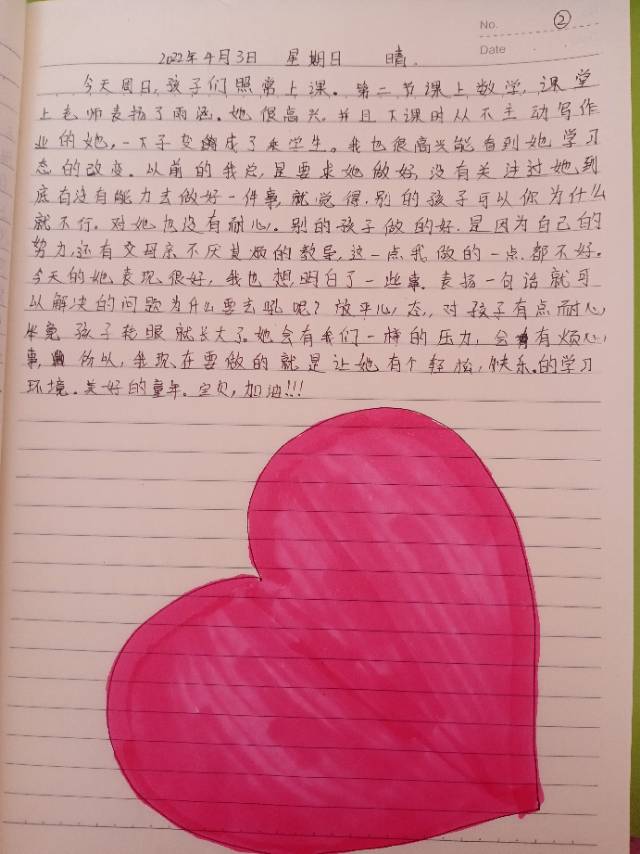 No. ②
Date
2022年4月3日 星期日 晴.
今天周日,孩子们照常上课。第二节课上数学,课堂
上老师表扬了雨涵。她很高兴,并且下课时从不主动写作
业的她,一下子变成了乖学生。我也很高兴能看到她学习
态的改变。以前的我总,是要求她做好,没有关注过她,到
底有没有能力去做好一件事,就觉得,别的孩子可以你为什么
就不行。对她也没有耐心。别的孩子做的好.是因为自己的
努力,还有父母亲不厌其烦的教导,这一点我做的一点都不好。
今天的她表现很好,我也想明白了一些事.表扬一句话就可
以解决的问题为什么要去吼呢?放平心态,对孩子有点耐心
孩子转眼就长大了.她会有我们一样的压力,会有烦心
事,所以,我现在要做的就是让她有个轻松,快乐.的学习
环境.美好的童年.宝贝,加油!!!